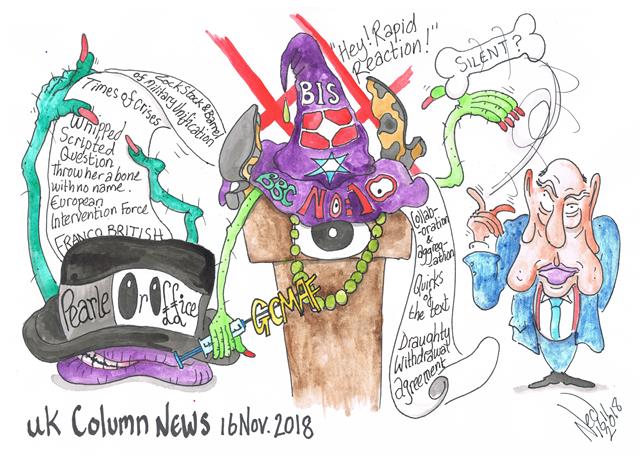 Lock Stock & Barrel
of Military Unification
Times of Crises
Whipped
Scripted
Question
Throw her a bone
with no name.
European
Intervention Force
FRANCO BRITISH
Pearle Or Office
££
"Hey! Rapid
Reaction!"
BIS
BBC
NO:10
GCMAF
SILENT?
Collab-
-oration
&
aggreg-
-ation
Quirks
of
the text
Draughty
Withdrawal
agreement
UK Column News 16 Nov. 2018
2018